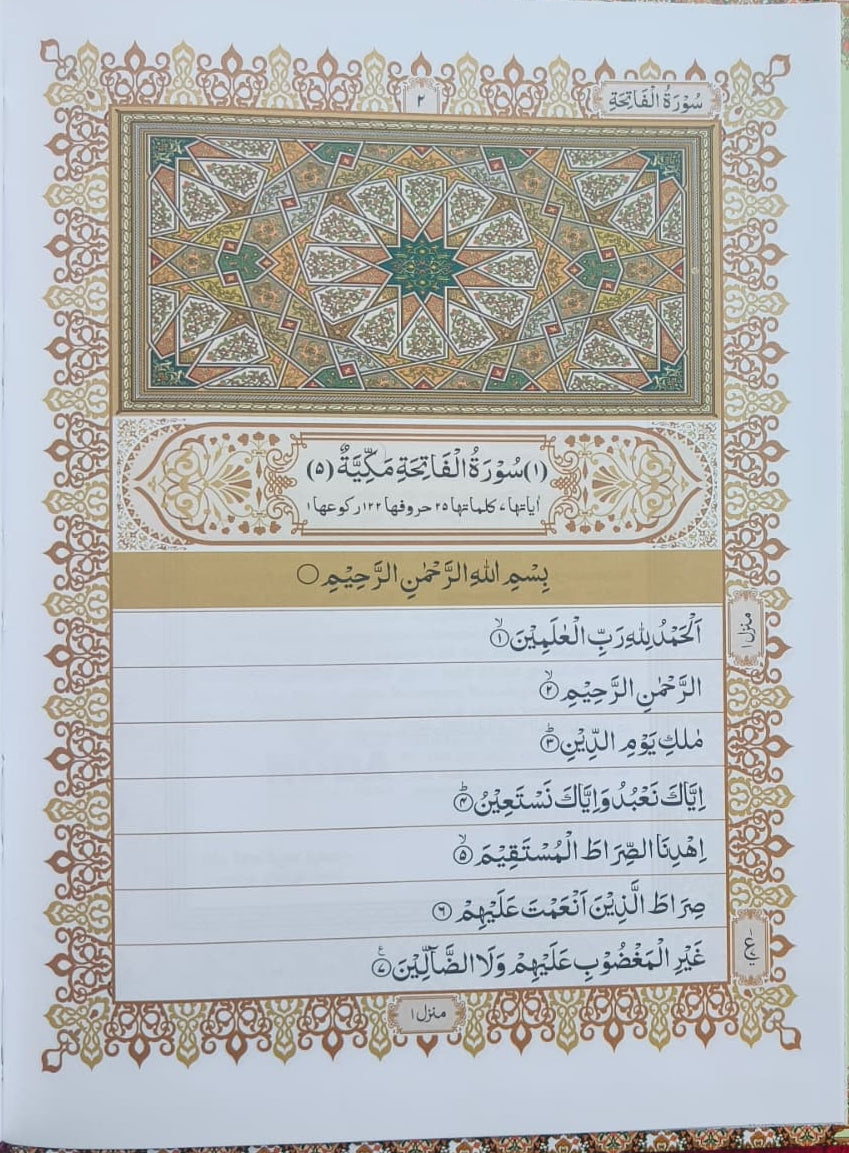 سُوْرَةُ الْفَاتِحَةِ
۲
(۱) سُوْرَةُ الْفَاتِحَةِ مَكِّيَّةٌ (۵)
اٰیاتها ۷ کلماتها ۲۵ حروفها ۱۲۲ رکوعها ۱
بِسْمِ اللّٰهِ الرَّحْمٰنِ الرَّحِيْمِ ○
اَلْحَمْدُ لِلّٰهِ رَبِّ الْعٰلَمِيْنَ ۙ ۱
الرَّحْمٰنِ الرَّحِيْمِ ۙ ۲
مٰلِكِ يَوْمِ الدِّيْنِ ؕ ۳
اِيَّاكَ نَعْبُدُ وَاِيَّاكَ نَسْتَعِيْنُ ؕ ۴
اِهْدِنَا الصِّرَاطَ الْمُسْتَقِيْمَ ۙ ۵
صِرَاطَ الَّذِيْنَ اَنْعَمْتَ عَلَيْهِمْ ۶
غَيْرِ الْمَغْضُوْبِ عَلَيْهِمْ وَلَا الضَّآلِّيْنَ ۷ ع
منزل ۱
ع
منزل ۱